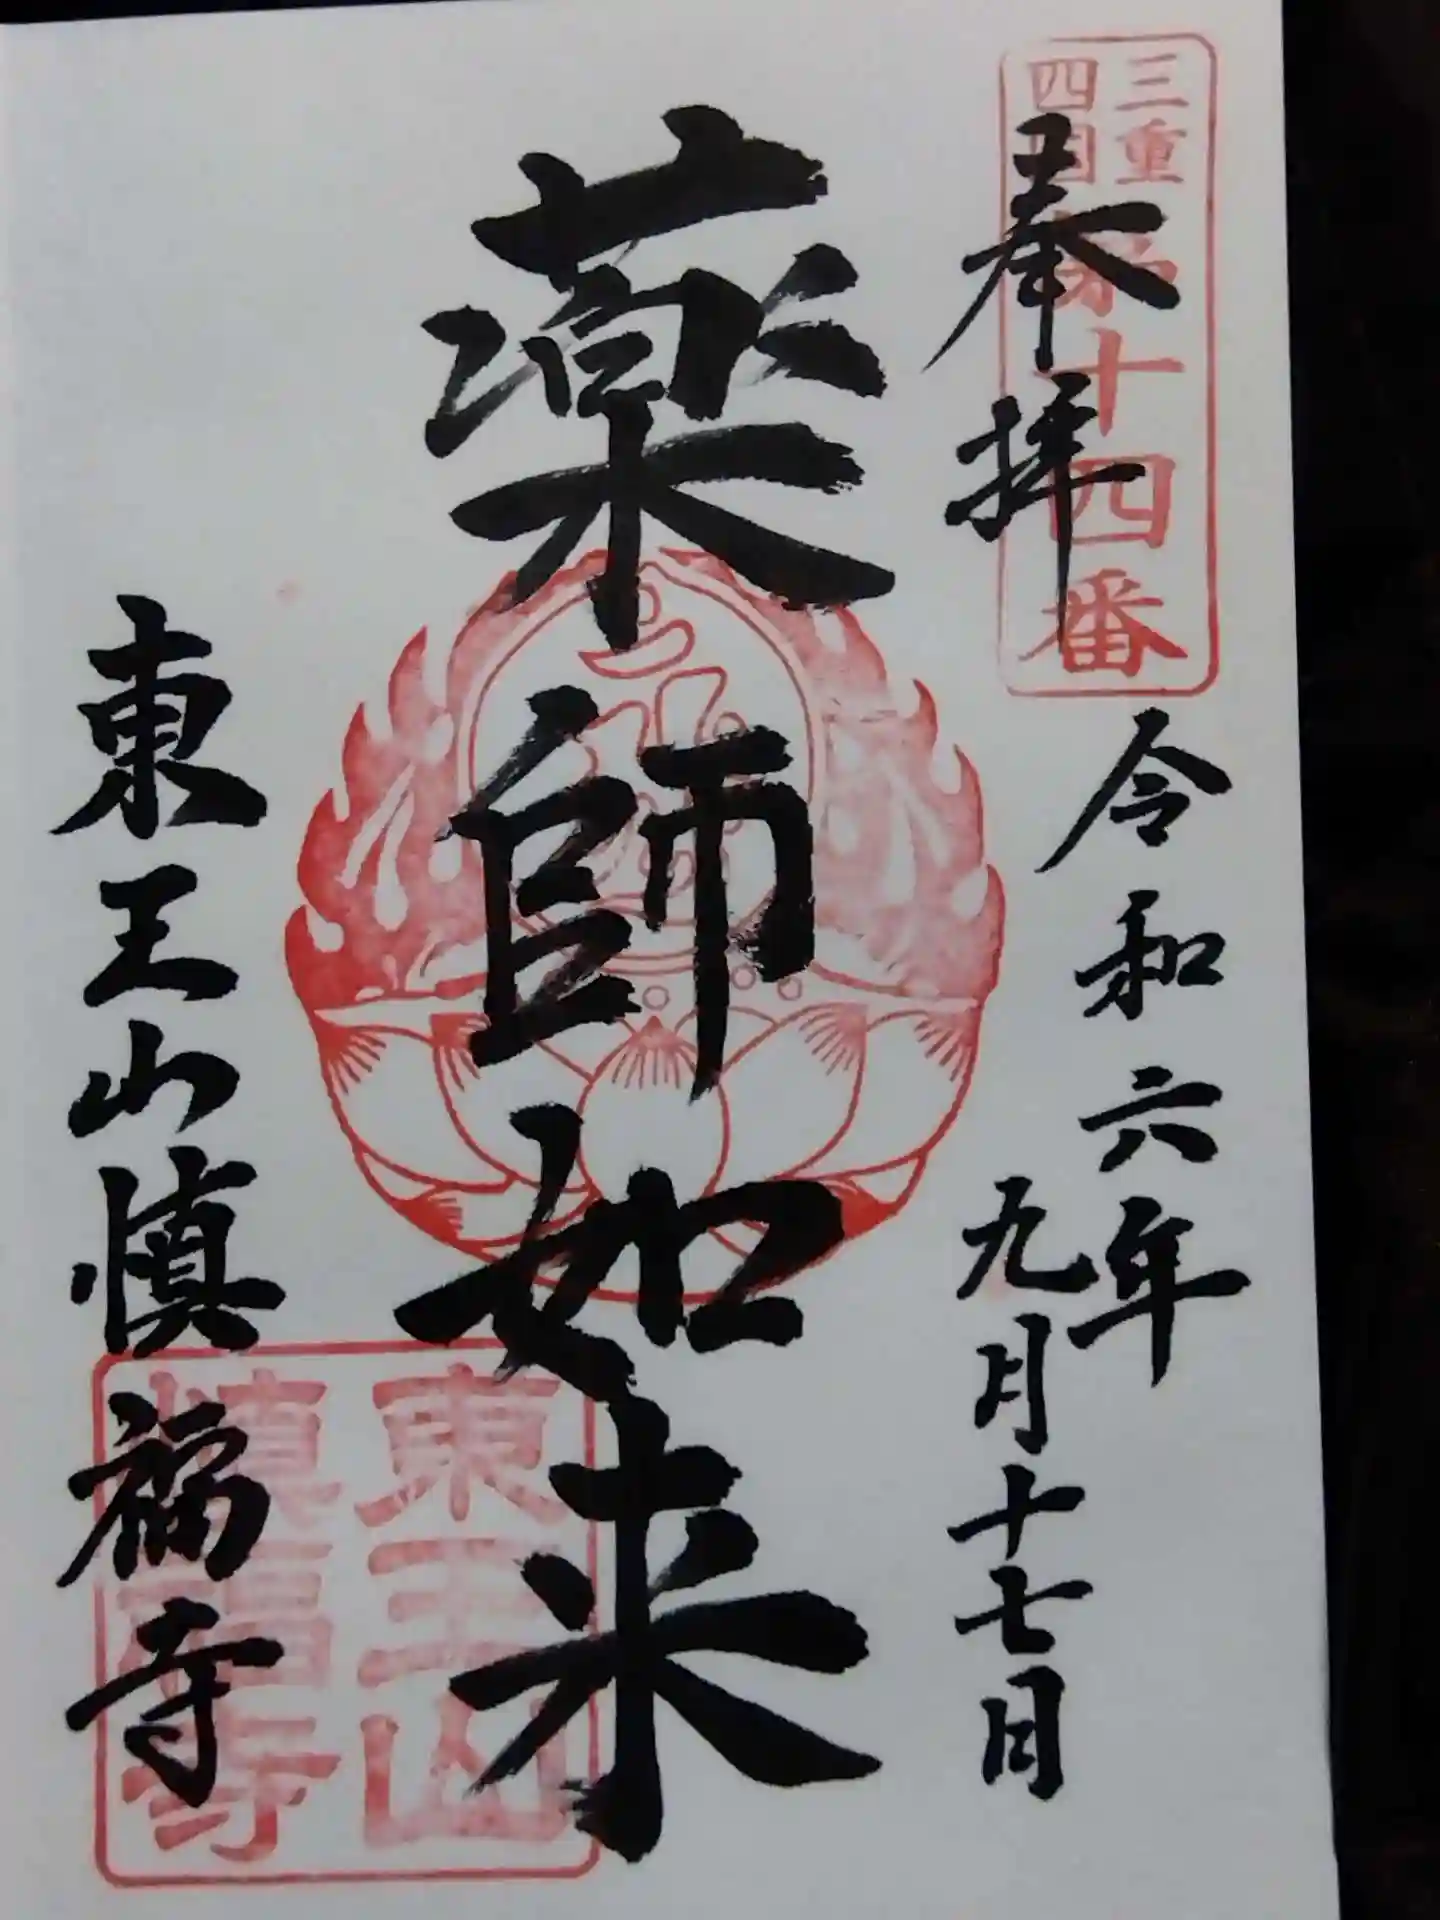 三重
四国
第十四番
奉拝
令和六年
九月十七日
薬師如来
東王山慎福寺
東王山
慎福寺